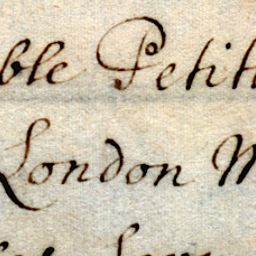 ble Petit
London M